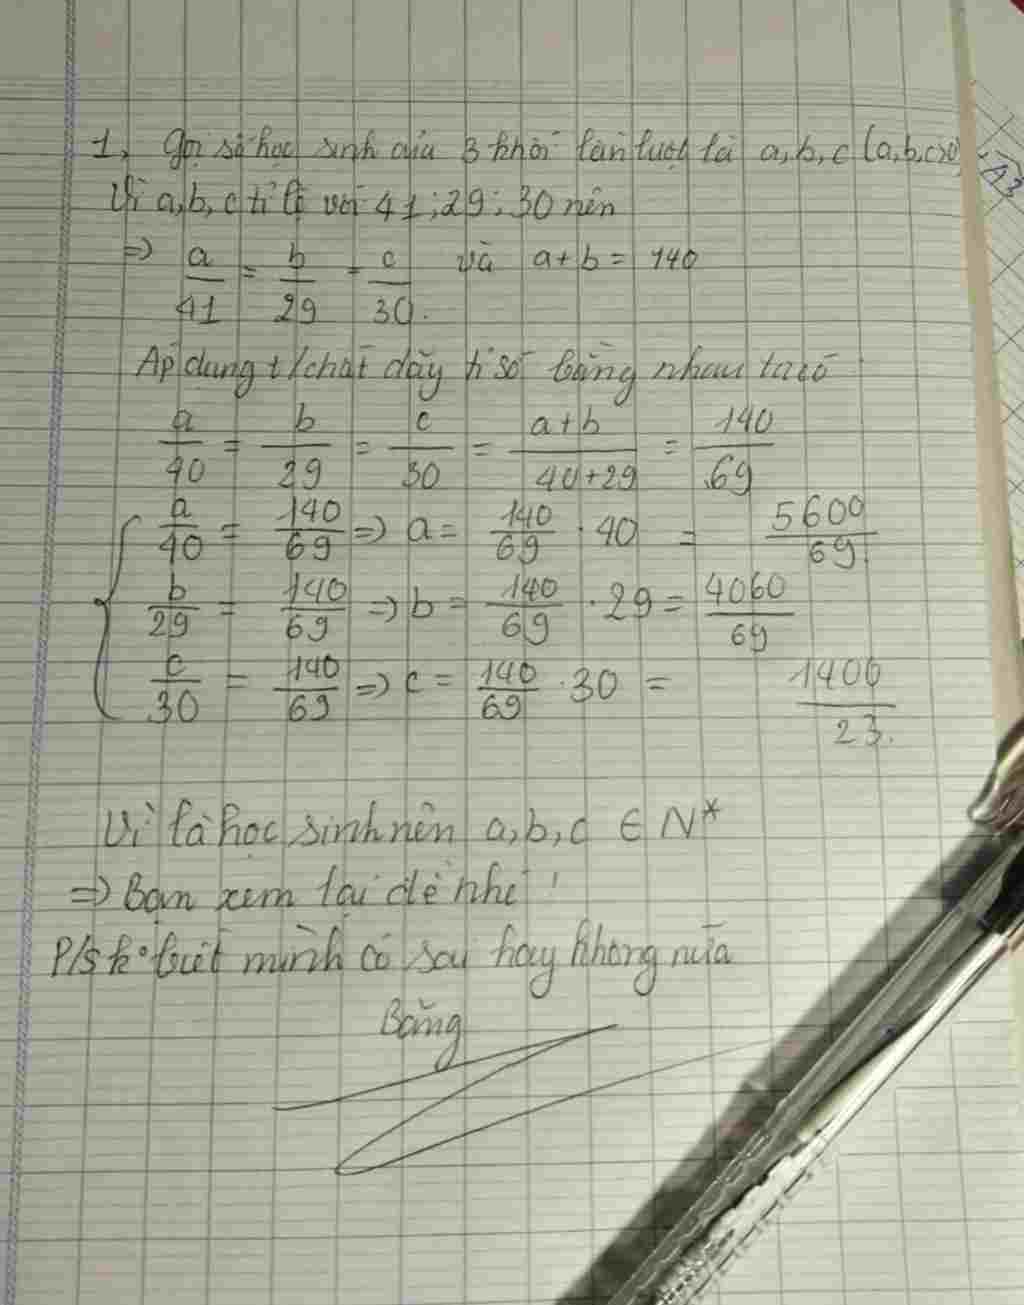 1, Gọi số học sinh của 3 khối lần lượt là a, b, c (a,b,c>0)
Vì a,b, c tỉ lệ với 41; 29; 30 nên
=> a/41 = b/29 = c/30. và a+b = 140
Áp dụng t/chất dãy tỉ số bằng nhau ta có
a/40 = b/29 = c/30 = a+b/40+29 = 140/69
a/40 = 140/69 => a = 140/69 . 40 = 5600/69
b/29 = 140/69 => b = 140/69 . 29 = 4060/69
c/30 = 140/69 => c = 140/69 . 30 = 1400/23.
Vì là học sinh nên a, b, c ∈ N*
=> Bạn xem lại đề nhé !
P/s k° biết mình có sai hay không nữa
Bằng